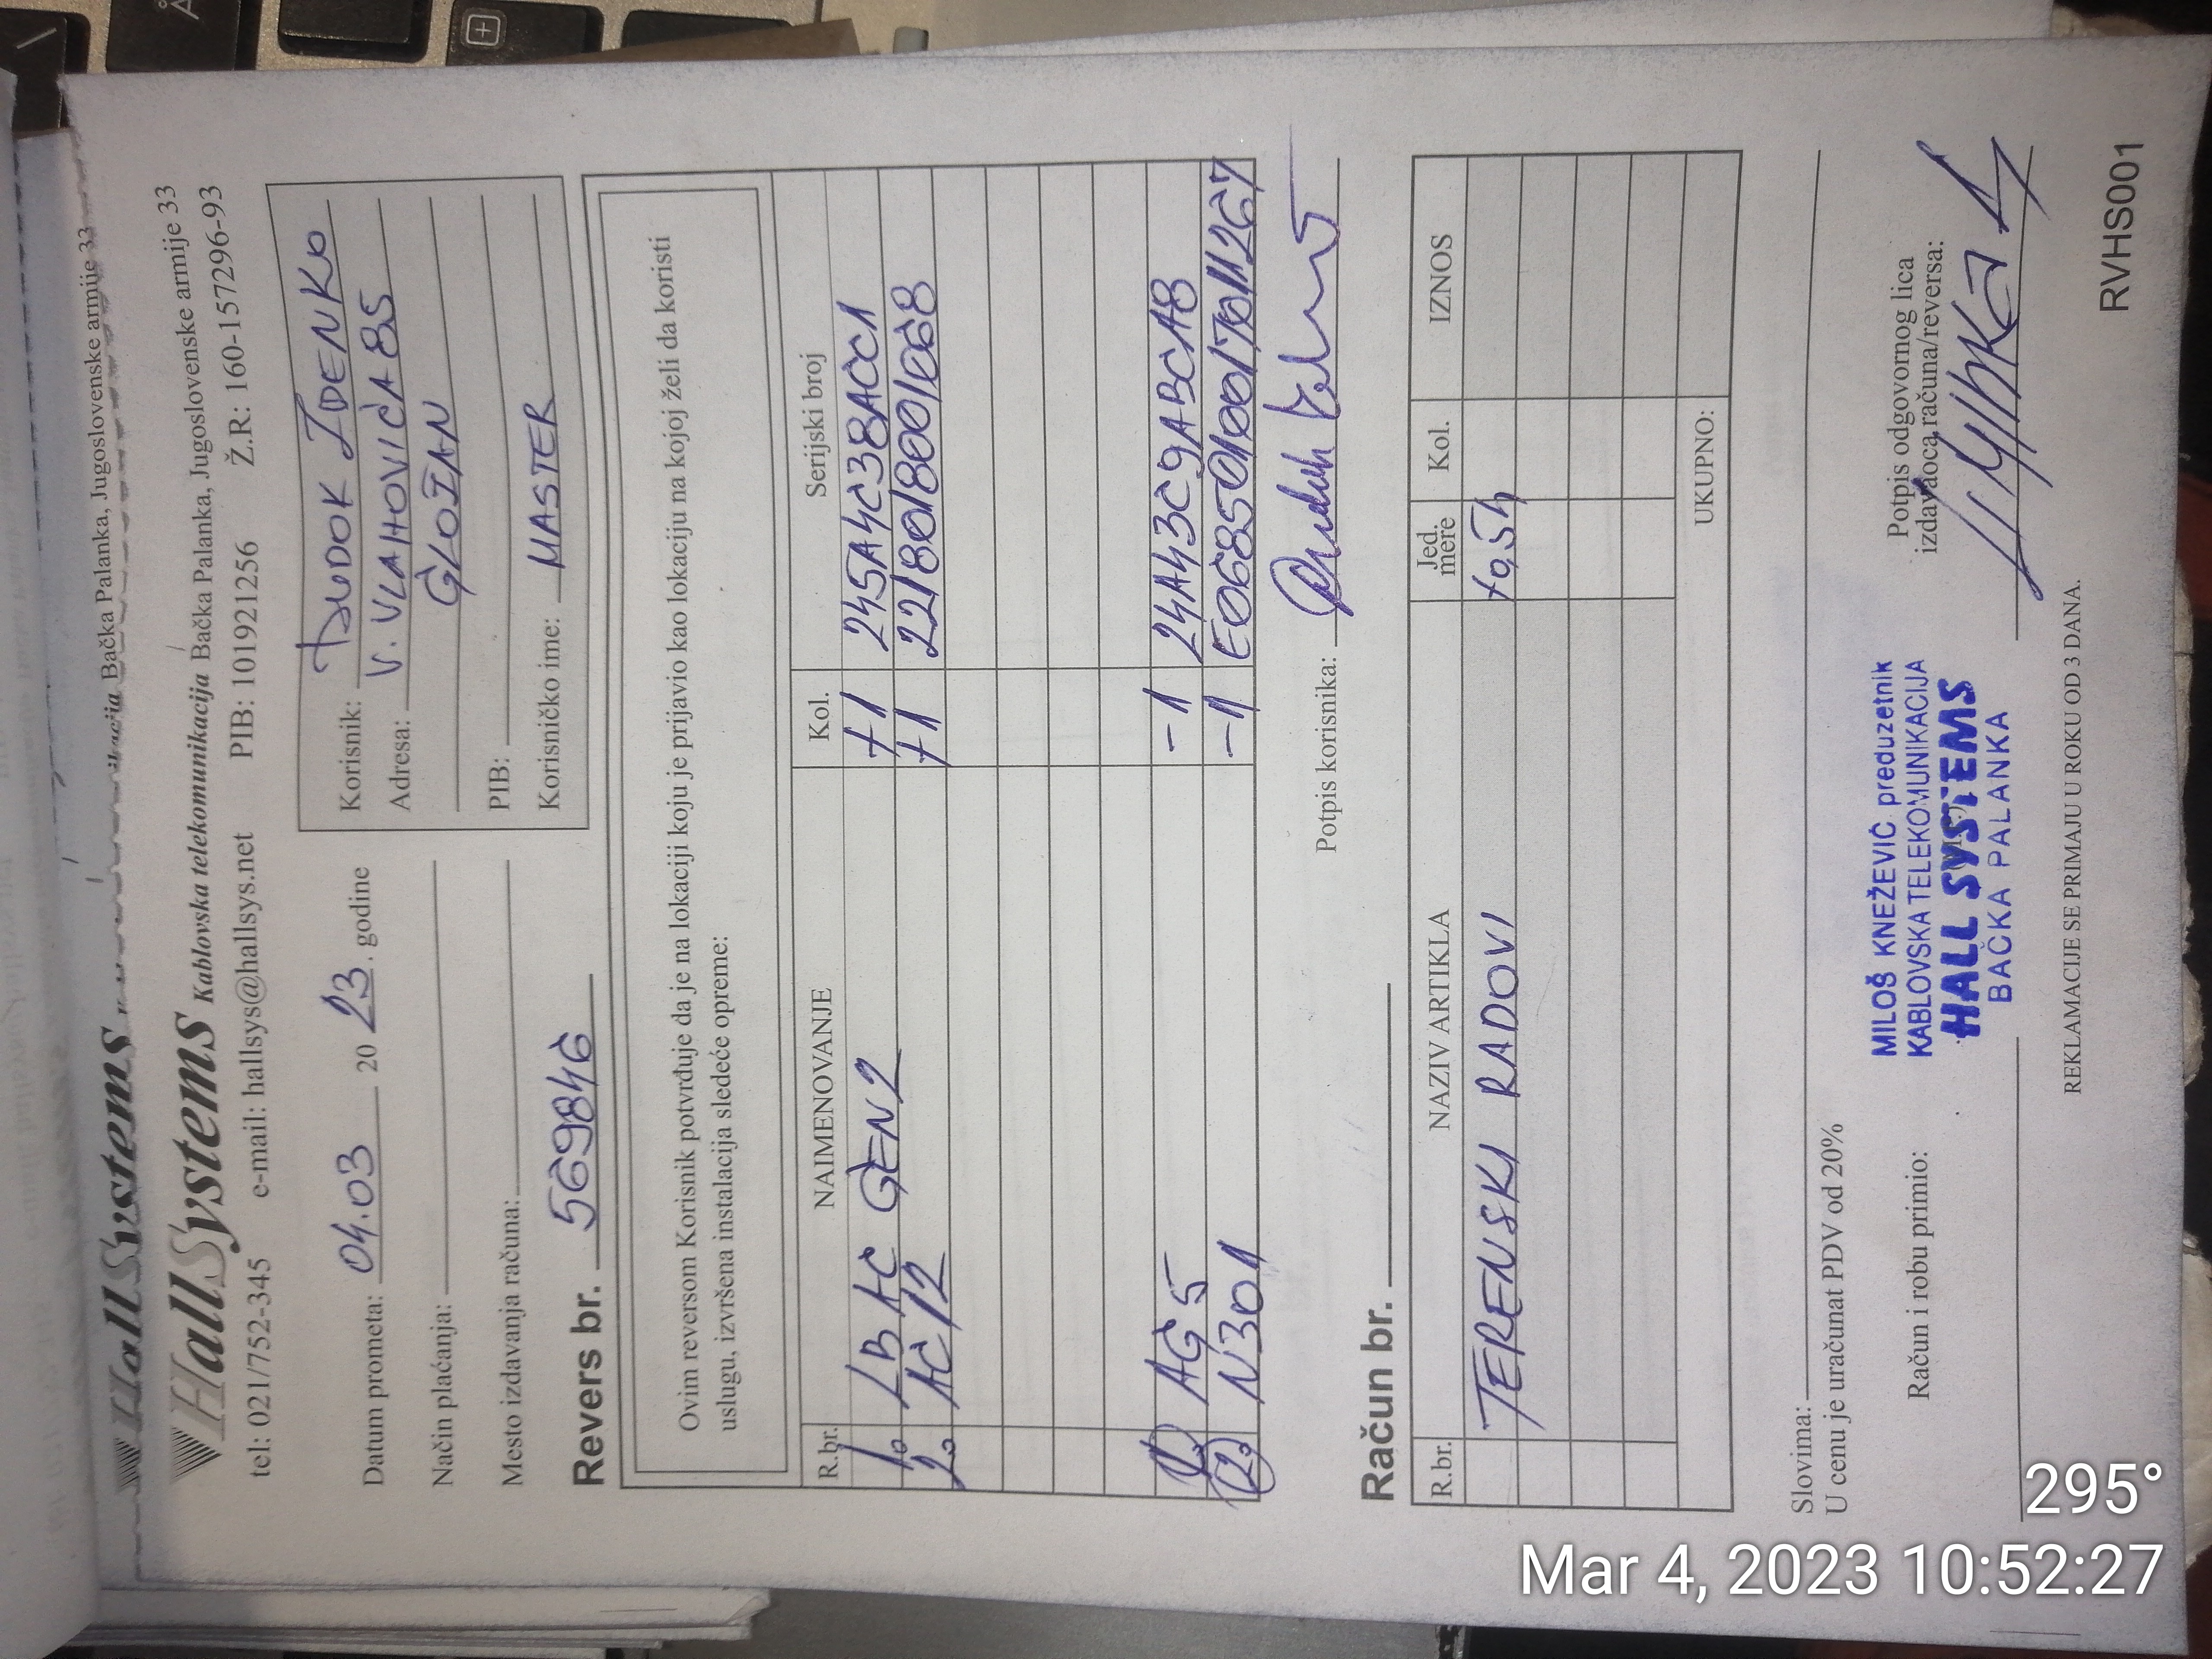 HallSystems Bačka Palanka, Jugoslovenske armije 33
HallSystems Kablovska telekomunikacija Bačka Palanka, Jugoslovenske armije 33
tel: 021/752-345 e-mail: hallsys@hallsys.net PIB: 101921256 Ž.R: 160-157296-93
Datum prometa: 04.03 20 23. godine
Način plaćanja:
Mesto izdavanja računa:
Korisnik: DUDOK ZDENKO
Adresa: V. VLAHOVIĆA 85
GLOŽAN
PIB:
Korisničko ime: MASTER
Revers br. 569846
Ovim reversom Korisnik potvrđuje da je na lokaciji koju je prijavio kao lokaciju na kojoj želi da koristi
uslugu, izvršena instalacija sledeće opreme:
R.br. NAIMENOVANJE Kol. Serijski broj
1. LB AC GEN2 +1 245A4C38ACC1
2. AC/12 +1 2218018001668
1. AG5 -1 24A43C9ABCAB
2. N301 -1 E0685010017011267
Potpis korisnika:
Račun br.
R.br. NAZIV ARTIKLA Jed. mere Kol. IZNOS
TERENSKI RADOVI +0,5h
UKUPNO:
Slovima:
U cenu je uračunat PDV od 20%
Račun i robu primio:
MILOŠ KNEŽEVIĆ preduzetnik
KABLOVSKA TELEKOMUNIKACIJA
HALL SYSTEMS
BAČKA PALANKA
Potpis odgovornog lica
izdavaoca računa/reversa:
REKLAMACIJE SE PRIMAJU U ROKU OD 3 DANA.
RVHS001
295°
Mar 4, 2023 10:52:27